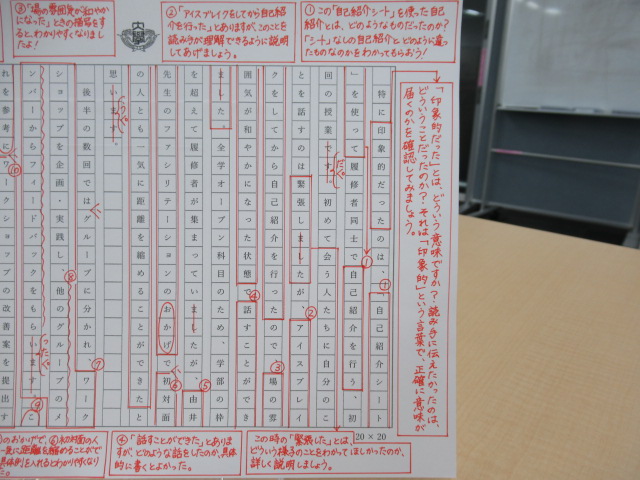 ① この「自己紹介シート」を使った自己
紹介とは、どのようなものだったのか?
「シート」なしの自己紹介とどのように違っ
たものなのかをわかってもらおう!
② 「アイスブレイクをしてから自己紹
介を行った」とありますが、このことを
読み手が理解できるように説明
してあげましょう。
③「場の雰囲気が和やか
になった」ときの描写をす
ると、わかりやすくなりま
したよ!
「印象的だった」とは、どういう意味ですか?読み手に伝えたかったのは、
どういうことだったのか?それは「印象的」という言葉で、正確に意味が
届くのかを確認してみましょう。
特に印象的だったのは、自己紹介シート
」を使って履修者同士で自己紹介を行う、初
回の授業です。初めて会う人たちに自分のこ
とを話すのは緊張しましたが、アイスブレイ
クをしてから自己紹介を行ったため、場の雰
囲気が和やかになった状態で話すことができ
ました。全学オープン科目のため、学部の枠
を超えて履修者が集まっていましたが、由井
先生のファシリテーションのおかげで初対面
の人とも一気に距離を縮めることができたと
思います。
後半の数回ではグループに分かれ、ワーク
ショップを企画・実践し、他のグループのメ
ンバーからフィードバックをもらいます。
れを参考にワークショップの改善案を提出す
20×20
この時の「緊張した」とは、
どういう様子のことをわかってほしかったのか、
詳しく説明しましょう。
④ 「話すことができた」とありま
すが、どのような話をしたのか、具体
的に書くとよかった。
のおかげで、⑥ 初対面の人
一気に距離を縮めることがで
具体例」を入れるとわかりやすくなり